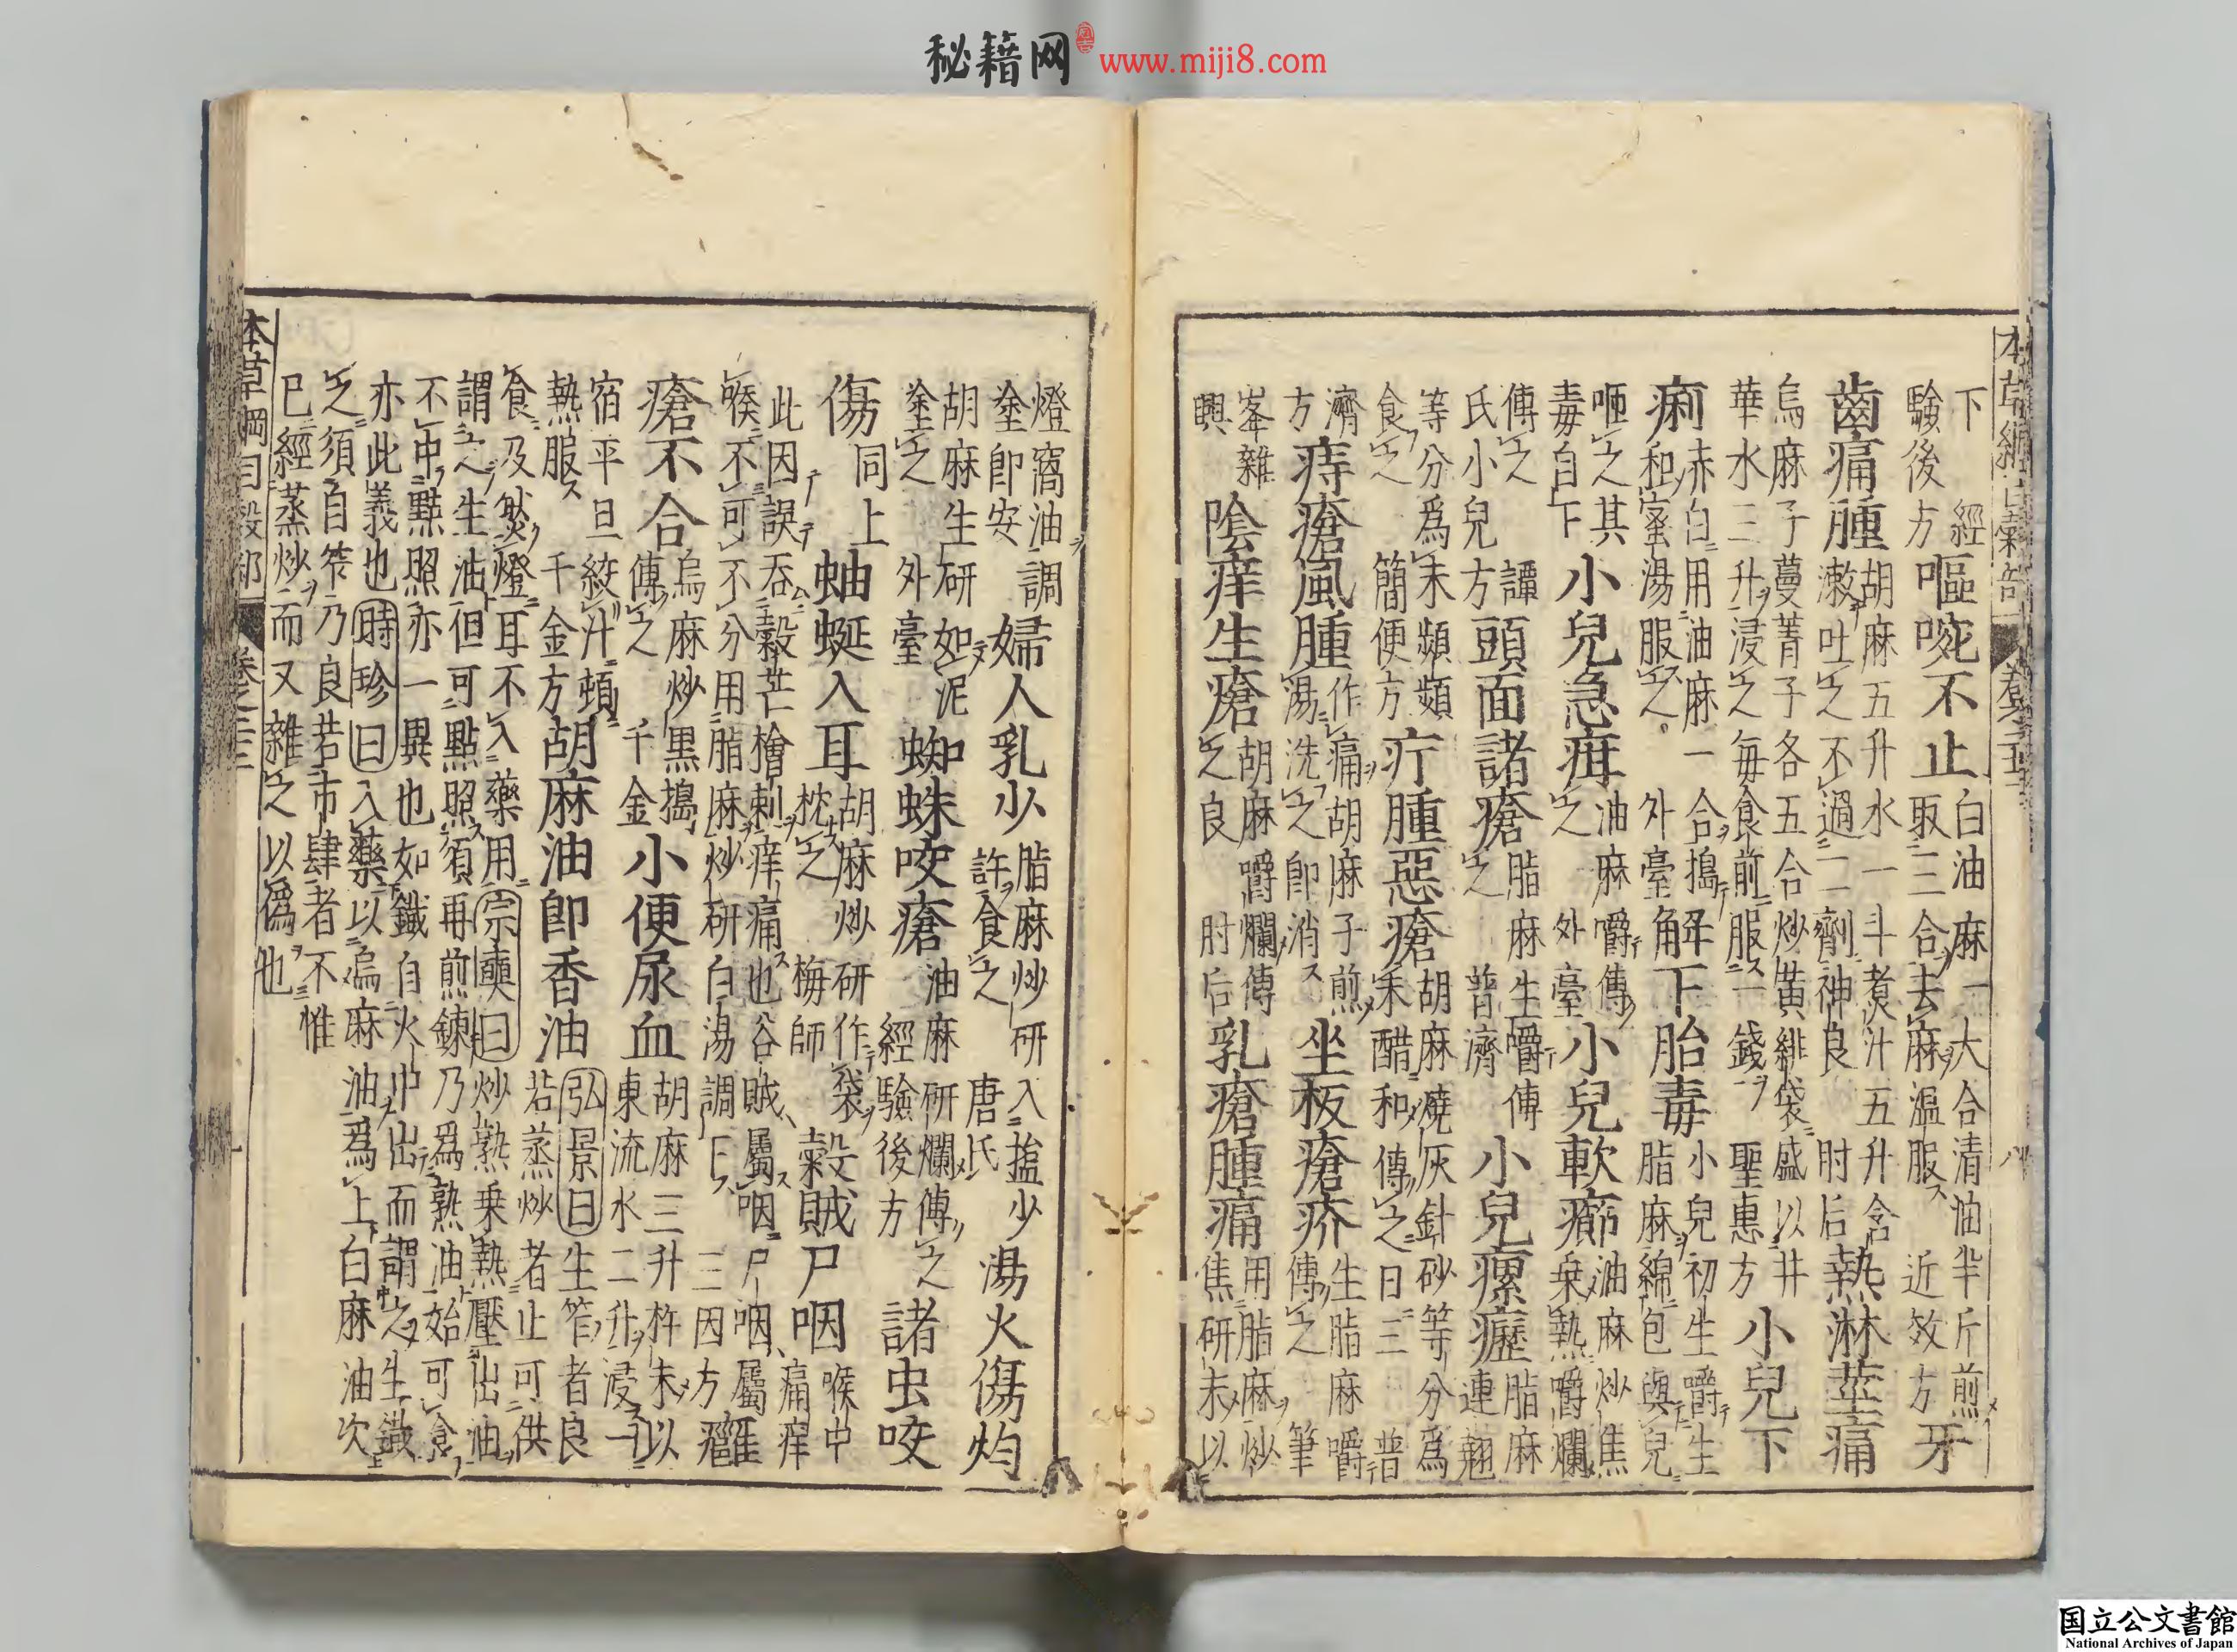 本草綱目穀部 八
下 經
驗後方
嘔啘不止
白油麻一大合清油半斤煎
取三合去麻溫服 近效方
牙
齒痛腫
胡麻五升水一斗煮汁五升含
漱吐之不過二劑神良 肘后
熱淋莖痛
烏麻子蔓菁子各五合炒黃緋袋盛以井
華水三升浸之每食前服一錢 聖惠方
小兒下
痢
赤白用油麻一合搗
和蜜湯服之 外臺
解下胎毒
小兒初生嚼生
脂麻綿包與兒
咂之其
毒自下
小兒急疳
油麻嚼傅
之 外臺
小兒軟癤
油麻炒焦
乗熱嚼爛
傅之 譚
氏小兒方
頭面諸瘡
脂麻生嚼傅
之 普濟
小兒瘰癧
脂麻
連翹
等分爲末頻頻
食之 簡便方
疔腫惡瘡
胡麻燒灰針砂等分爲
末醋和傅之日三 普
濟
方
痔瘡風腫
作痛胡麻子煎
湯洗之即消
坐板瘡疥
生脂麻嚼
傅之 筆
峯雜
興
陰痒生瘡
胡麻嚼爛傅
之良 肘后
乳瘡腫痛
用脂麻炒
焦研末以
燈窩油調
塗即安
婦人乳少
脂麻炒研入塩少
許食之 唐氏
湯火傷灼
胡麻生研如泥
塗之 外臺
蜘蛛咬瘡
油麻研爛傅之
經驗後方
諸虫咬
傷
同上
蚰蜒入耳
胡麻炒研作袋
枕之 梅師
穀賊尸咽
喉中
痛痒
此因誤吞穀芒檜刺痒痛也谷賊屬咽尸咽屬
喉不可不分用脂麻炒研白湯調下 三因方
癰
瘡不合
烏麻炒黒搗
傅之 千金
小便尿血
胡麻三升杵末以
東流水二升浸一
宿平旦絞汁頓
熱服 千金方
胡麻油即香油
弘景曰生笮者良
若蒸炒者止可供
食及燃燈耳不入藥用宗奭曰炒熟乗熱壓出油
謂之生油但可點照須再煎鍊乃爲熟油始可食
不中㸃照亦一異也如鐵自火中出而謂之生鐵
亦此義也時珍曰入藥以烏麻油爲上白麻油次
之須自笮乃良若市肆者不惟
已經蒸炒而又雜之以爲也
本草綱目穀部
秘籍网 www.miji8.com
国立公文書館
National Archives of Japan